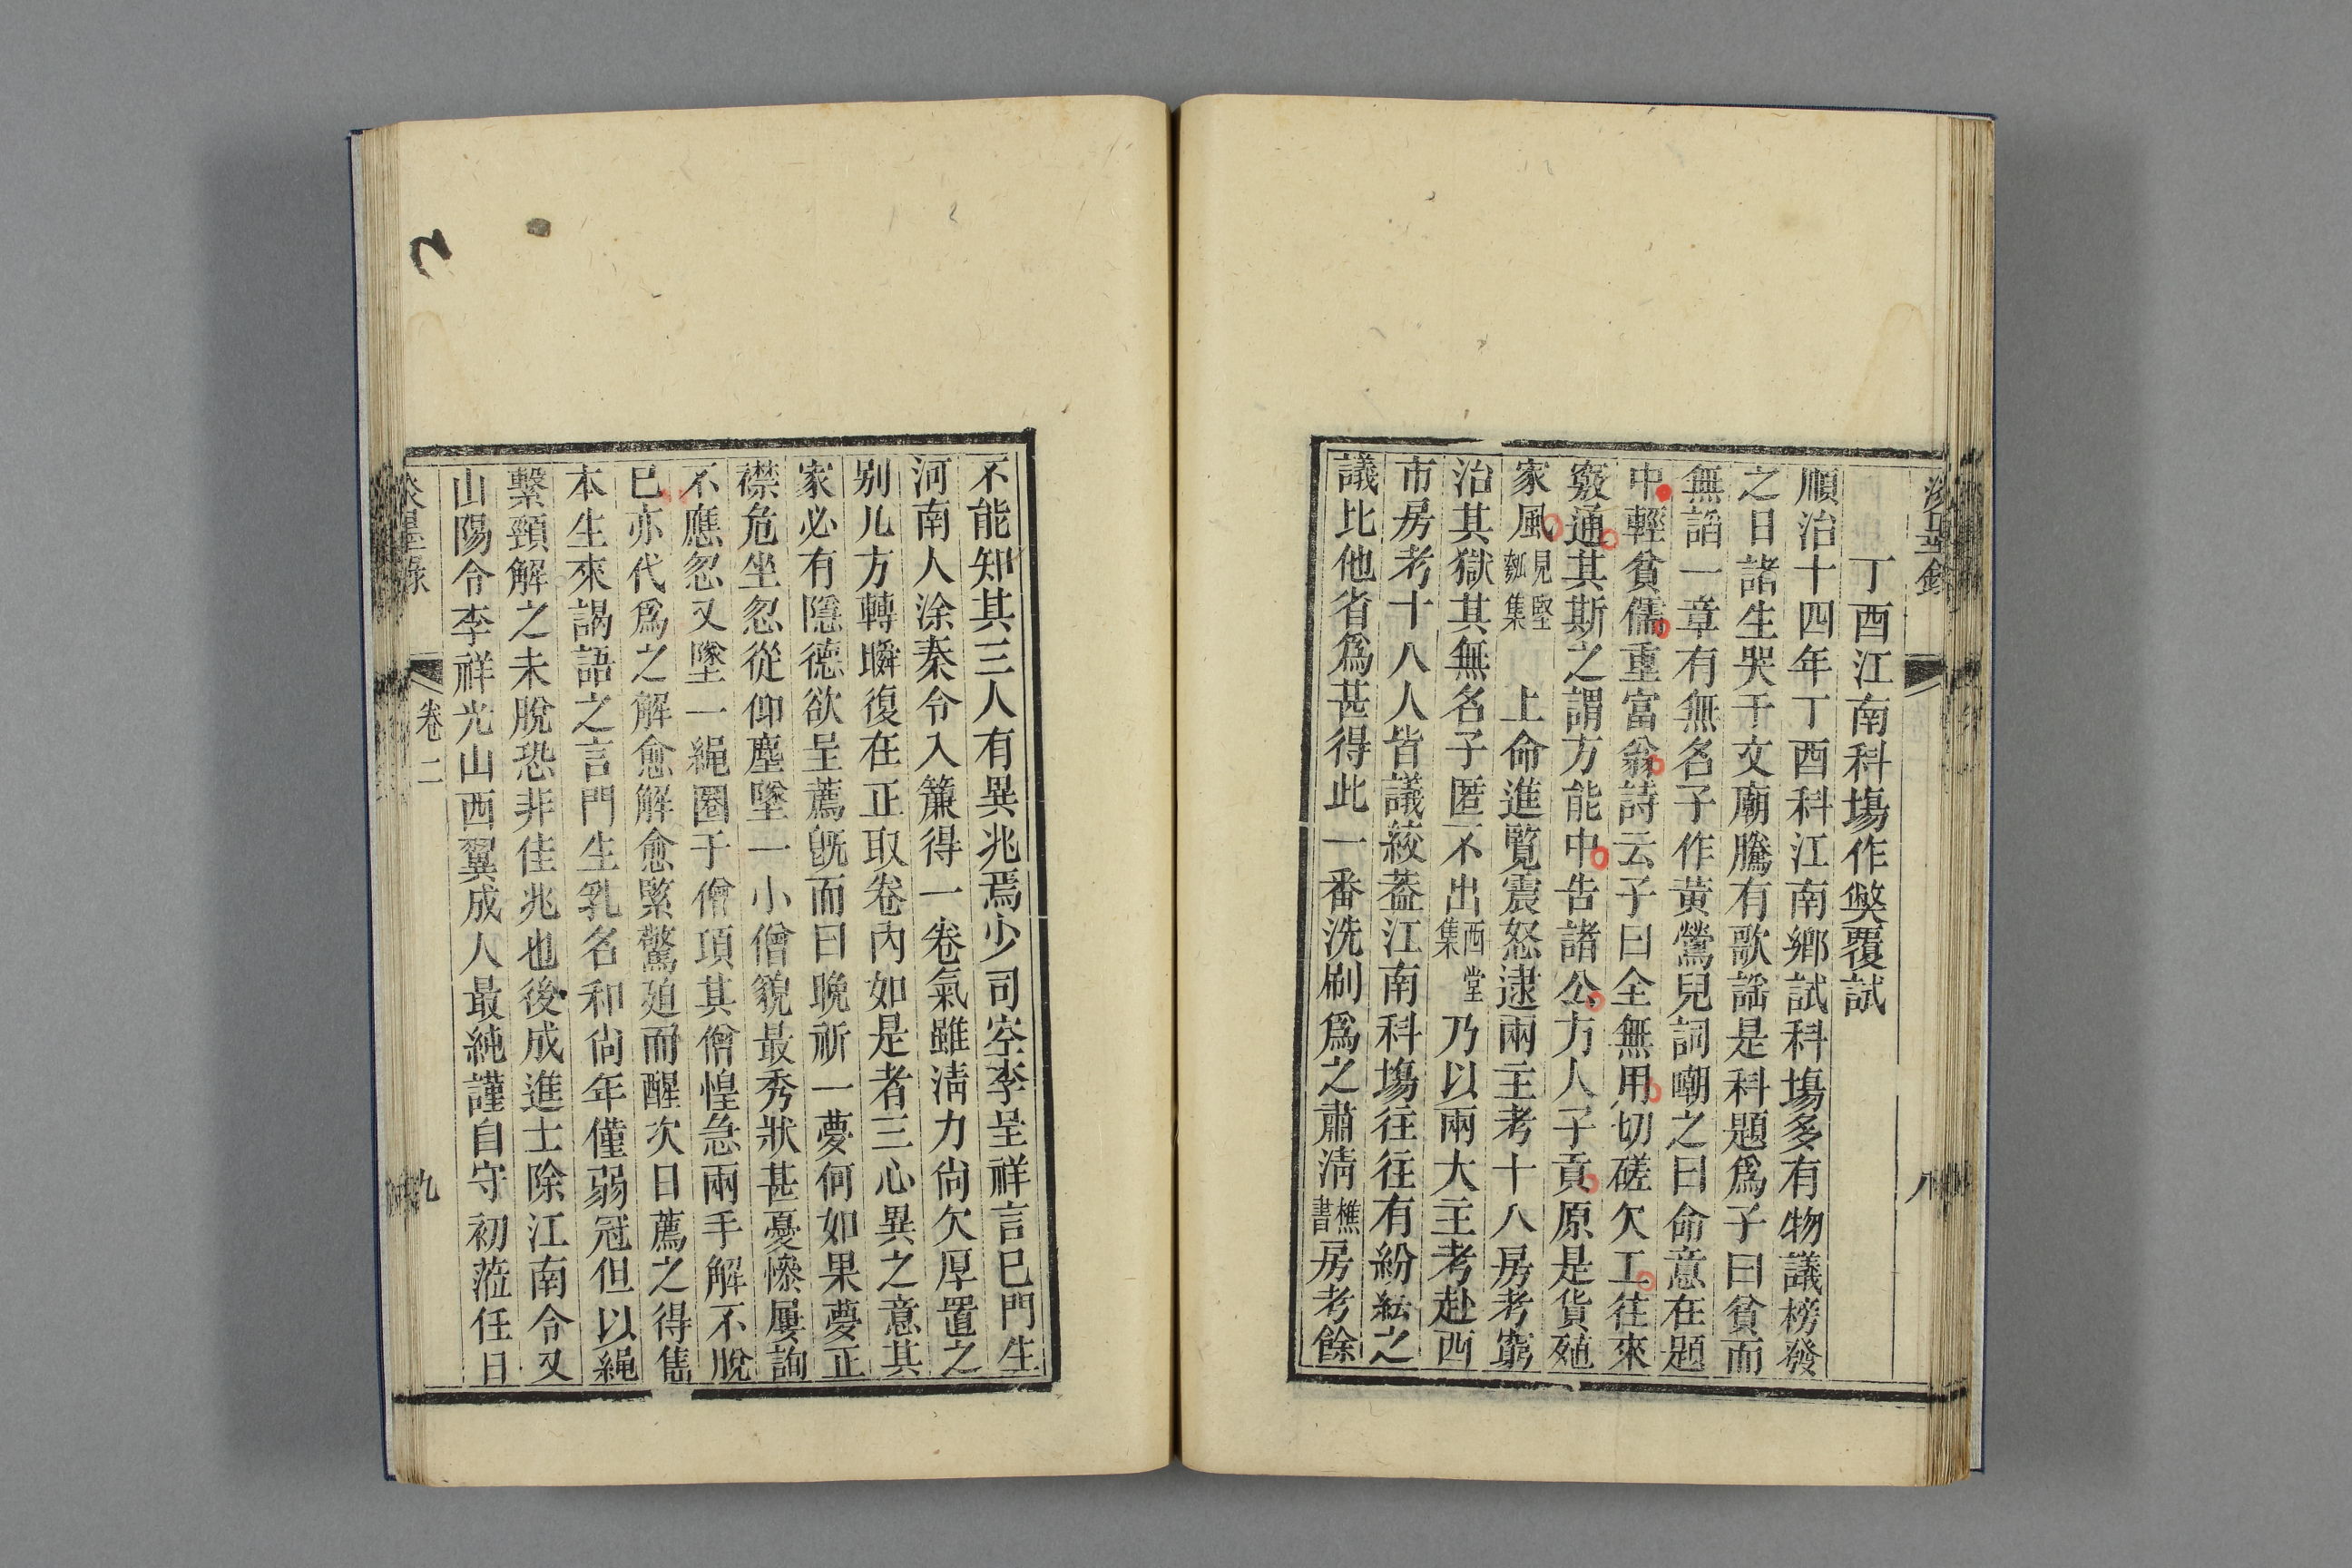 丁酉江南科場作弊覆試
順治十四年丁酉科江南鄉試科場多有物議榜發
之日諸生哭于文廟騰有歌謠是科題為子曰貧而
無諂一章有無名子作黃鶯兒詞嘲之曰命意在題
中輕貧儒重富翁詩云子曰全無用切磋欠工往來
竅通其斯之謂方能中告諸公方人子貢原是貨殖
家風見堅瓠集　上命進覽震怒逮兩主考十八房考窮
治其獄其無名子匿不出西堂集乃以兩大主考赴西
市房考十八人皆議絞葢江南科場往往有紛紜之
議比他省爲甚得此一番洗刷爲之肅淸樵書房考餘
八
不能知其三人有異兆焉少司空李呈祥言巳門生
河南人涂秦令入簾得一卷氣雖淸力尙欠厚置之
别几方轉瞬復在正取卷內如是者三心異之意其
家必有隱德欲呈薦旣而曰晚祈一夢何如果夢正
襟危坐忽從仰塵墜一小僧貌最秀狀甚憂慘屢詢
不應忽又墜一繩圈于僧項其僧惶急兩手解不脫
巳亦代爲之解愈解愈緊驚廹而醒次日薦之得雋
本生來謁語之言門生乳名和尙年僅弱冠但以繩
繫頸解之未脫恐非佳兆也後成進士除江南令又
山陽令李祥光山西翼成人最純謹自守初蒞任日
卷二
九